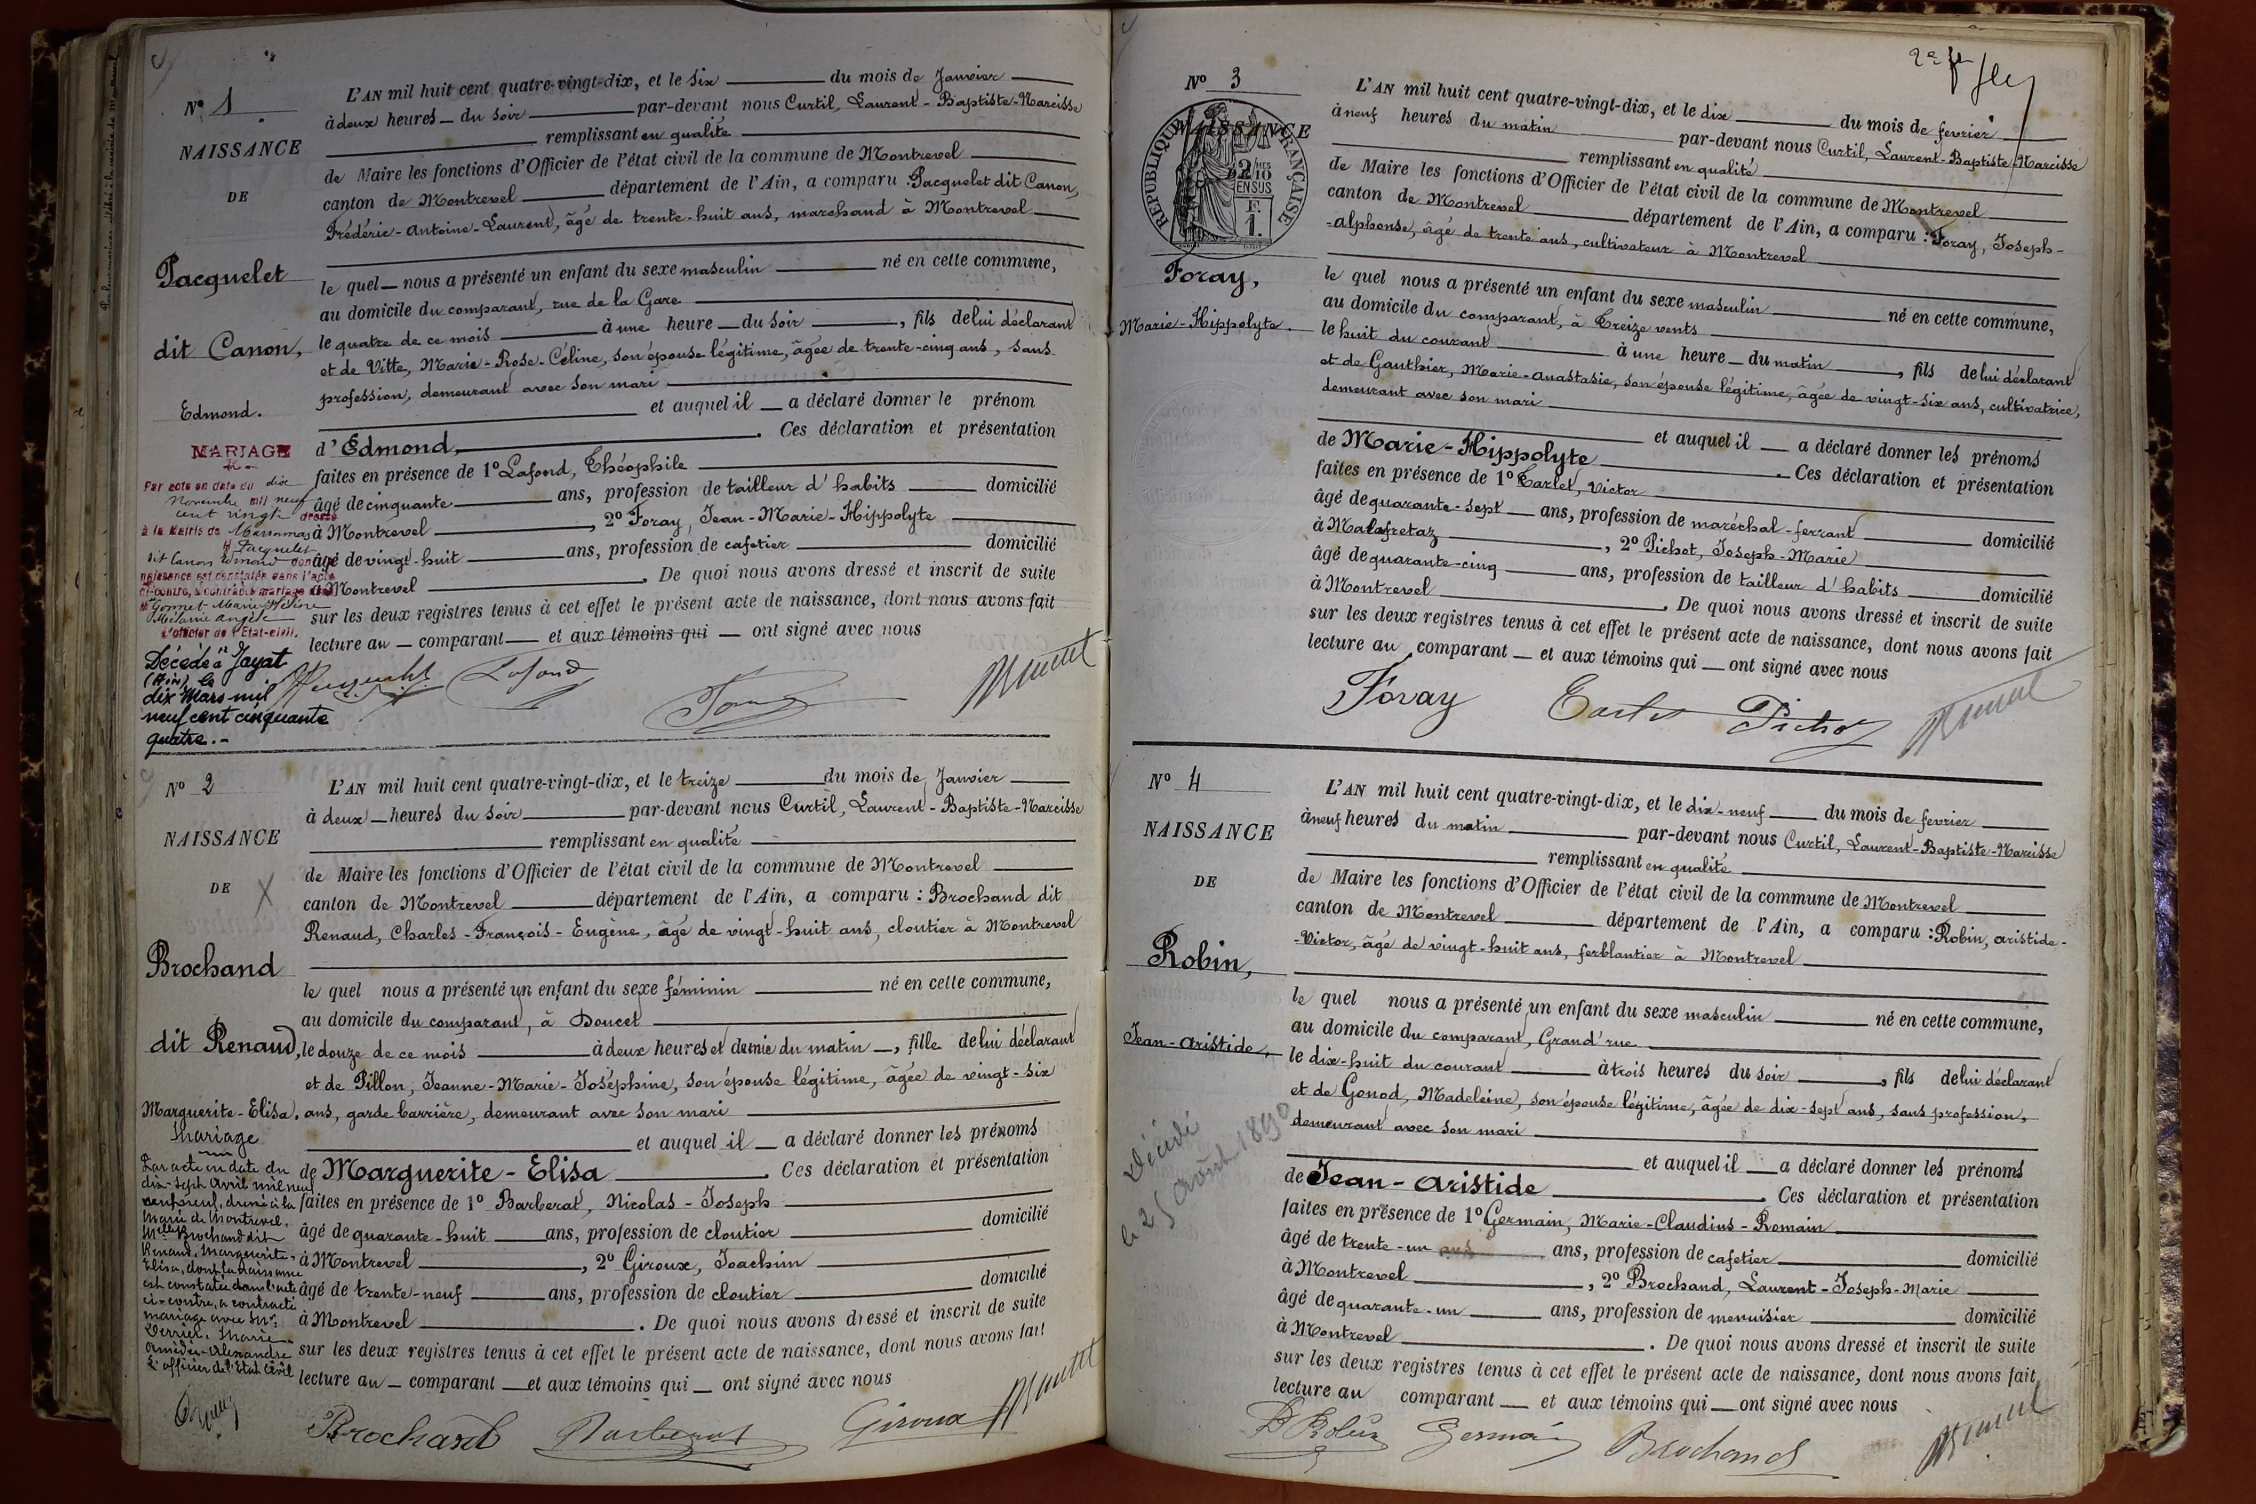 Nº 1
NAISSANCE
DE
Pacquelet
dit Canon,
Edmond.
L'AN mil huit cent quatre-vingt-dix, et le six du mois de Janvier
à deux heures du soir par-devant nous Curtil, Laurent-Baptiste-Narcisse
remplissant en qualité
de Maire les fonctions d'Officier de l'état civil de la commune de Montrevel
canton de Montrevel département de l'Ain, a comparu : Pacquelet dit Canon,
Frédéric-Antoine-Laurent, âgé de trente-huit ans, marchand à Montrevel
le quel nous a présenté un enfant du sexe masculin né en cette commune,
au domicile du comparant, rue de la Gare
le quatre de ce mois à une heure du soir, fils de lui déclarant
et de Vitte, Marie-Rose-Céline, son épouse légitime, âgée de trente-cinq ans, sans
profession, demeurant avec son mari
et auquel il a déclaré donner le prénom
d'Edmond. Ces déclaration et présentation
faites en présence de 1º Lafond, Théophile
âgé de cinquante ans, profession de tailleur d'habits domicilié
à Montrevel, 2º Foray, Jean-Marie-Hippolyte
âgé de vingt-huit ans, profession de cafetier domicilié
à Montrevel. De quoi nous avons dressé et inscrit de suite
sur les deux registres tenus à cet effet le présent acte de naissance, dont nous avons fait
lecture au comparant et aux témoins qui ont signé avec nous
Lafond
MARIAGE
Par acte en date du dix
Novembre mil neuf
cent vingt dressé
à la Mairie de
Pacquelet
dit Canon Edmond dont la
naissance est constatée dans l'acte
ci-contre, a contracté mariage avec
Gonnet Marie
L'officier de l'Etat-civil,
Décédé à Jayat
(Ain), le
dix Mars mil
neuf cent cinquante
quatre.-
Nº 2
NAISSANCE
DE
Brochand
dit Renaud,
Marguerite-Elisa.
L'AN mil huit cent quatre-vingt-dix, et le treize du mois de Janvier
à deux heures du soir par-devant nous Curtil, Laurent-Baptiste-Narcisse
remplissant en qualité
de Maire les fonctions d'Officier de l'état civil de la commune de Montrevel
canton de Montrevel département de l'Ain, a comparu : Brochand dit
Renaud, Charles-François-Eugène, âgé de vingt-huit ans, cloutier à Montrevel
le quel nous a présenté un enfant du sexe féminin né en cette commune,
au domicile du comparant, à Doucet
le douze de ce mois à deux heures et demie du matin, fille de lui déclarant
et de Pillon, Jeanne-Marie-Joséphine, son épouse légitime, âgée de vingt-six
ans, garde barrière, demeurant avec son mari
et auquel il a déclaré donner les prénoms
de Marguerite-Elisa. Ces déclaration et présentation
faites en présence de 1º Barberat, Nicolas-Joseph
âgé de quarante-huit ans, profession de cloutier domicilié
à Montrevel, 2º Giroux, Joachim
âgé de trente-neuf ans, profession de cloutier domicilié
à Montrevel. De quoi nous avons dressé et inscrit de suite
sur les deux registres tenus à cet effet le présent acte de naissance, dont nous avons fait
lecture au comparant et aux témoins qui ont signé avec nous
Brochand Barberat Giroux
Mariage
Par acte en date du
dix-sept avril mil neuf
cent neuf, dressé à la
Mairie de Montrevel,
Melle Brochand dit
Renaud, Marguerite-
Elisa, dont la naissance
est constatée dans l'acte
ci-contre, a contracté
mariage avec Mr.
Verrier, Marie-
Amédée-Alexandre
L'officier de l'Etat Civil
Nº 3
NAISSANCE
RÉPUBLIQUE FRANÇAISE
2/10
EN SUS
F.
1.
Foray,
Marie-Hippolyte.
L'AN mil huit cent quatre-vingt-dix, et le dix du mois de fevrier
à neuf heures du matin par-devant nous Curtil, Laurent-Baptiste-Narcisse
remplissant en qualité
de Maire les fonctions d'Officier de l'état civil de la commune de Montrevel
canton de Montrevel département de l'Ain, a comparu : Foray, Joseph-
-alphonse, âgé de trente ans, cultivateur à Montrevel
le quel nous a présenté un enfant du sexe masculin né en cette commune,
au domicile du comparant, à Treize vents
le huit du courant à une heure du matin, fils de lui déclarant
et de Gauthier, Marie-anastasie, son épouse légitime, âgée de vingt-six ans, cultivatrice,
demeurant avec son mari
et auquel il a déclaré donner les prénoms
de Marie-Hippolyte. Ces déclaration et présentation
faites en présence de 1º Carlet, Victor
âgé de quarante-sept ans, profession de maréchal-ferrant domicilié
à Malafretaz, 2º Pichot, Joseph-Marie
âgé de quarante-cinq ans, profession de tailleur d'habits domicilié
à Montrevel. De quoi nous avons dressé et inscrit de suite
sur les deux registres tenus à cet effet le présent acte de naissance, dont nous avons fait
lecture au comparant et aux témoins qui ont signé avec nous
Foray Carlet Pichot
Nº 4
NAISSANCE
DE
Robin,
Jean-aristide,
L'AN mil huit cent quatre-vingt-dix, et le dix-neuf du mois de fevrier
à neuf heures du matin par-devant nous Curtil, Laurent-Baptiste-Narcisse
remplissant en qualité
de Maire les fonctions d'Officier de l'état civil de la commune de Montrevel
canton de Montrevel département de l'Ain, a comparu : Robin, aristide-
-Victor, âgé de vingt-huit ans, ferblantier à Montrevel
le quel nous a présenté un enfant du sexe masculin né en cette commune,
au domicile du comparant, Grand'rue
le dix-huit du courant à trois heures du soir, fils de lui déclarant
et de Gonod, Madeleine, son épouse légitime, âgée de dix-sept ans, sans profession,
demeurant avec son mari
et auquel il a déclaré donner les prénoms
de Jean-aristide. Ces déclaration et présentation
faites en présence de 1º Germain, Marie-Claudius-Romain
âgé de trente-un ans, profession de cafetier domicilié
à Montrevel, 2º Brochand, Laurent-Joseph-Marie
âgé de quarante-un ans, profession de menuisier domicilié
à Montrevel. De quoi nous avons dressé et inscrit de suite
sur les deux registres tenus à cet effet le présent acte de naissance, dont nous avons fait
lecture au comparant et aux témoins qui ont signé avec nous
Robin Germain Brochand
Décédé
le 25 août 1890